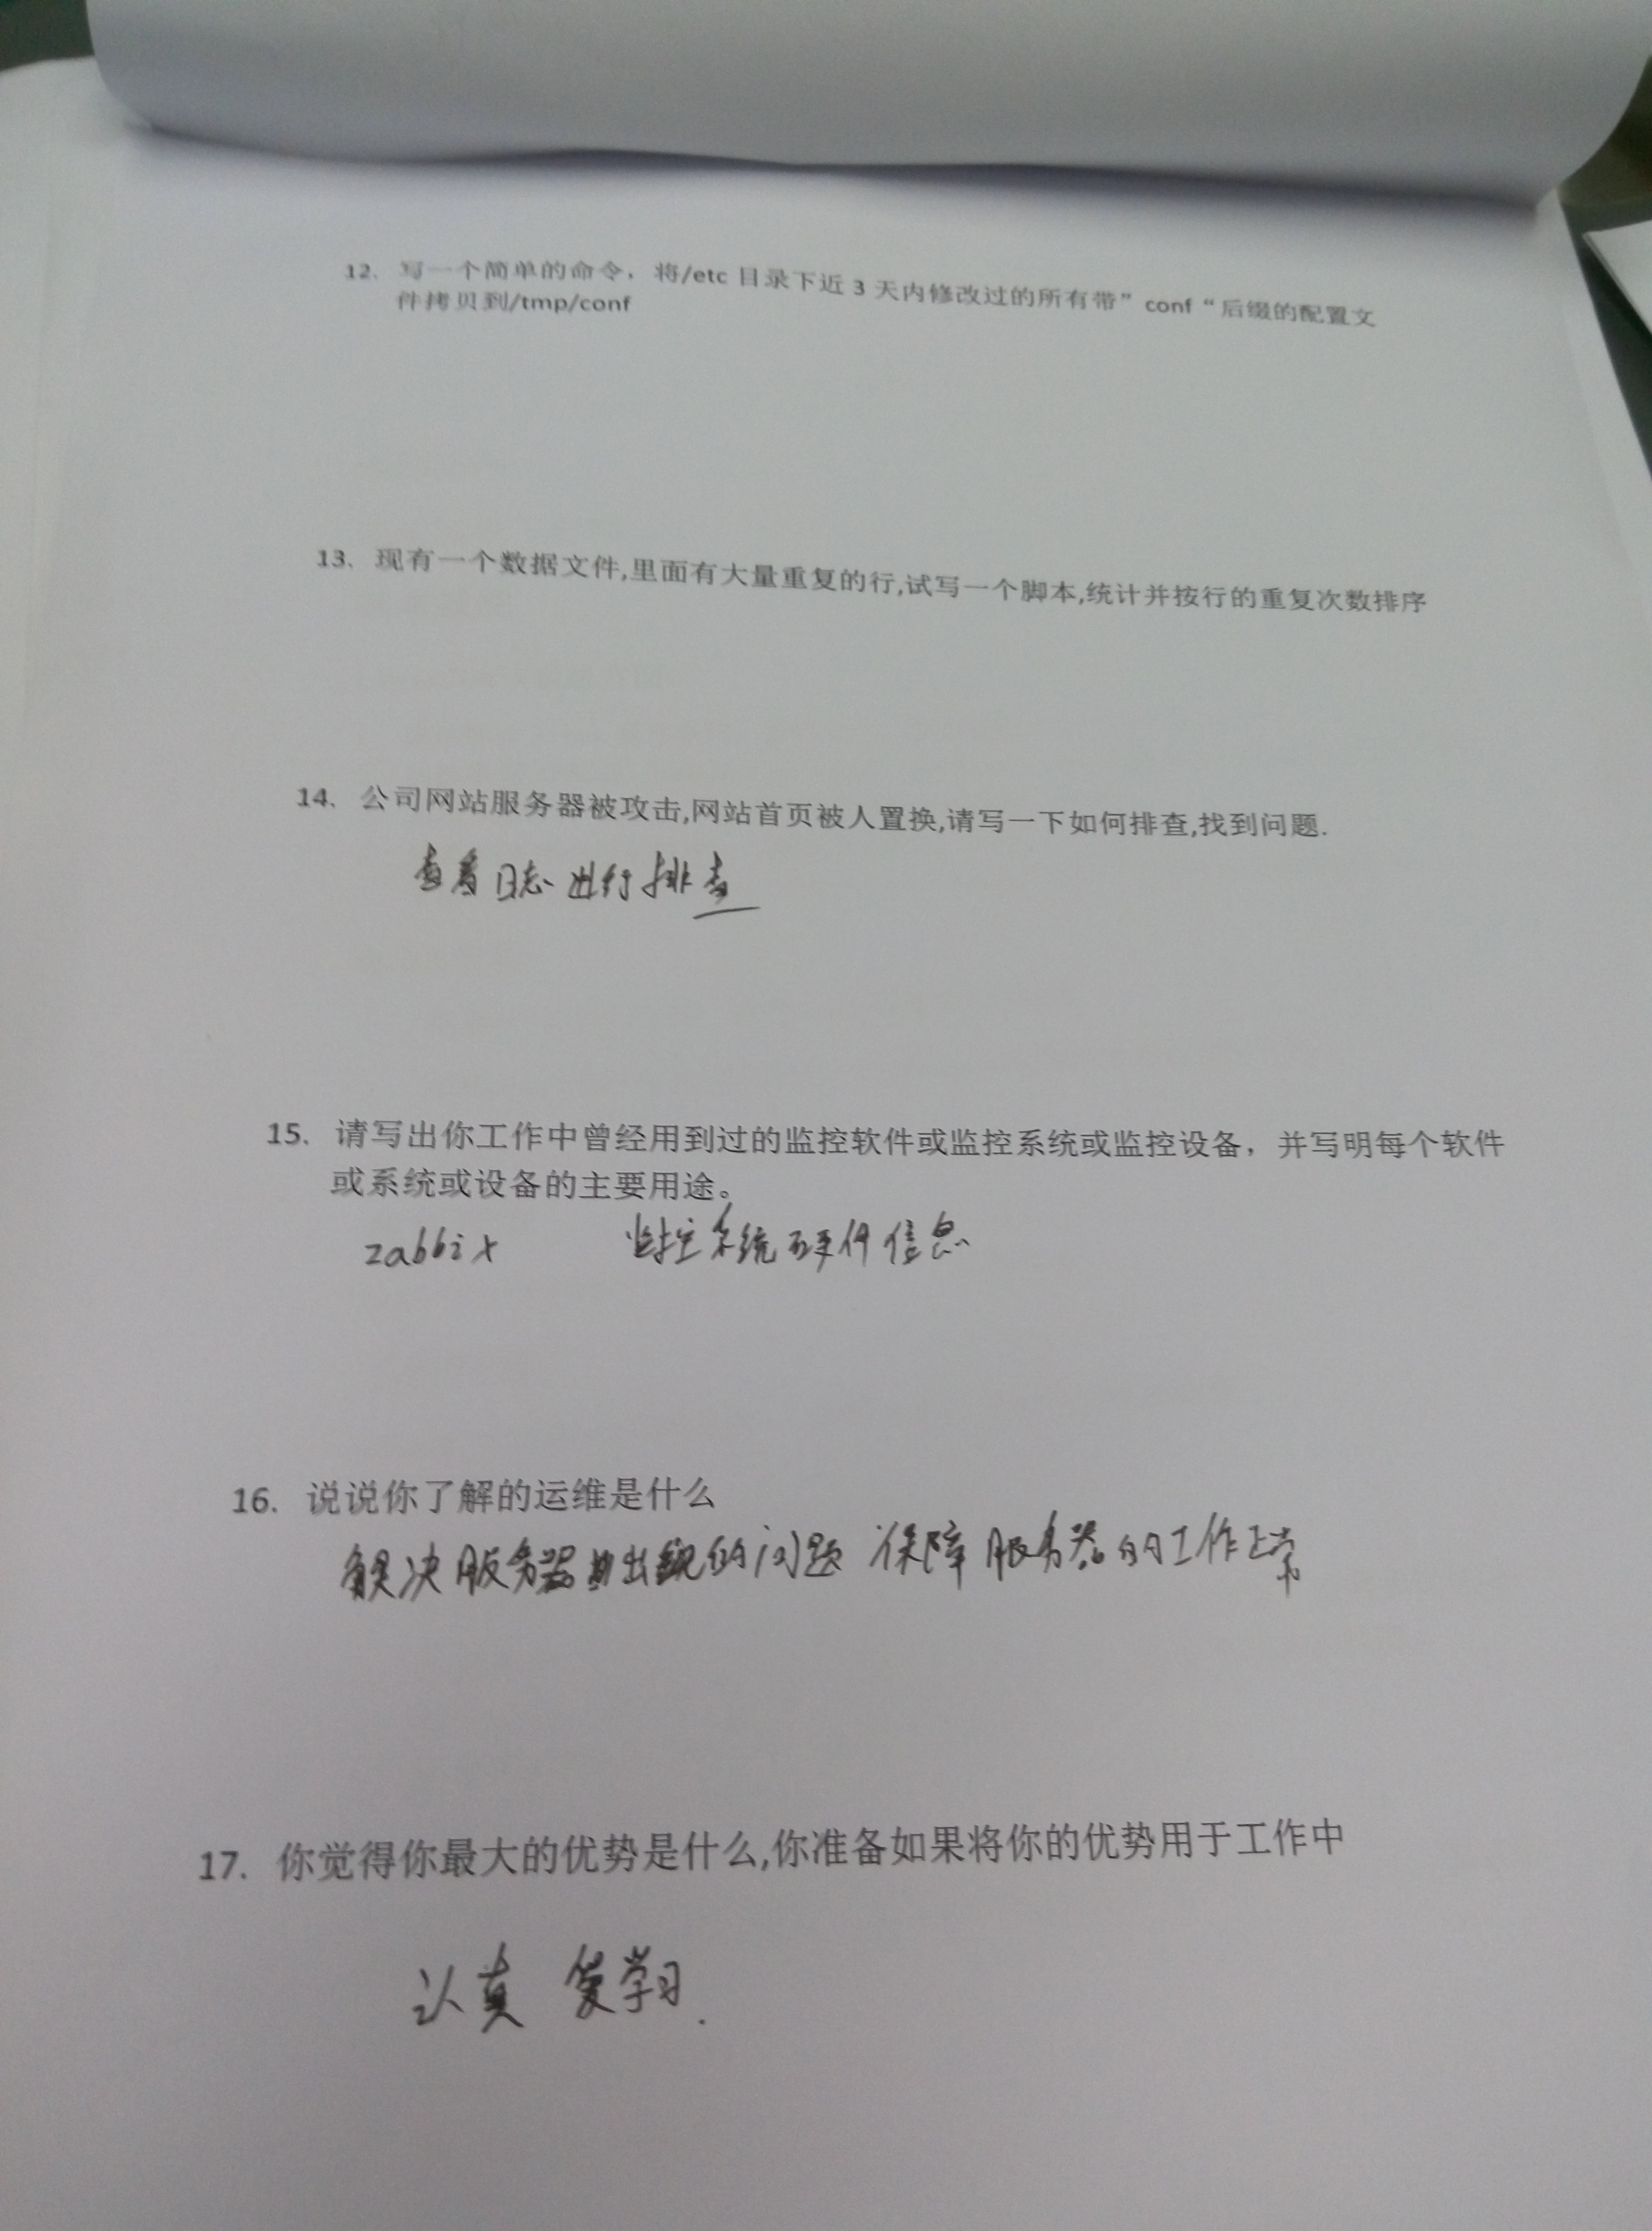 12. 写一个简单的命令，将/etc 目录下近 3 天内修改过的所有带” conf “后缀的配置文
件拷贝到/tmp/conf
13. 现有一个数据文件,里面有大量重复的行,试写一个脚本,统计并按行的重复次数排序
14. 公司网站服务器被攻击,网站首页被人置换,请写一下如何排查,找到问题.
查看日志 进行排查
15. 请写出你工作中曾经用到过的监控软件或监控系统或监控设备，并写明每个软件
或系统或设备的主要用途。
zabbix 监控系统硬件信息
16. 说说你了解的运维是什么
解决服务器出现的问题 保障服务器的工作正常
17. 你觉得你最大的优势是什么,你准备如果将你的优势用于工作中
认真 爱学习.